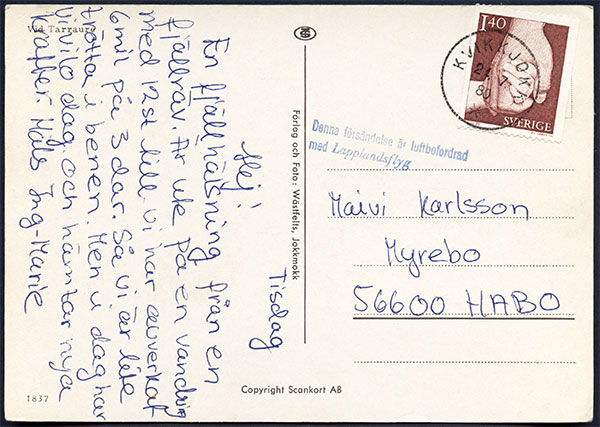 Vid Tarraure
Tisdag
Hej!
En fjällhälsning från en
fjällräv. Är ute på en vandring
med 12st till. Vi har avverkat
6 mil på 3 dar. Så vi är lite
trötta i benen. Men i dag har
vi vilodag och hämtar nya
krafter. Mäls Ing-Marie
1837
Förlag och Foto: Wästfelts, Jokkmokk
Copyright Scankort AB
1.40
SVERIGE
KVIKKJOKK
80
Denna försändelse är luftbefordrad
med Lapplandsflyg
Maivi Karlsson
Myrebo
56600 HABO